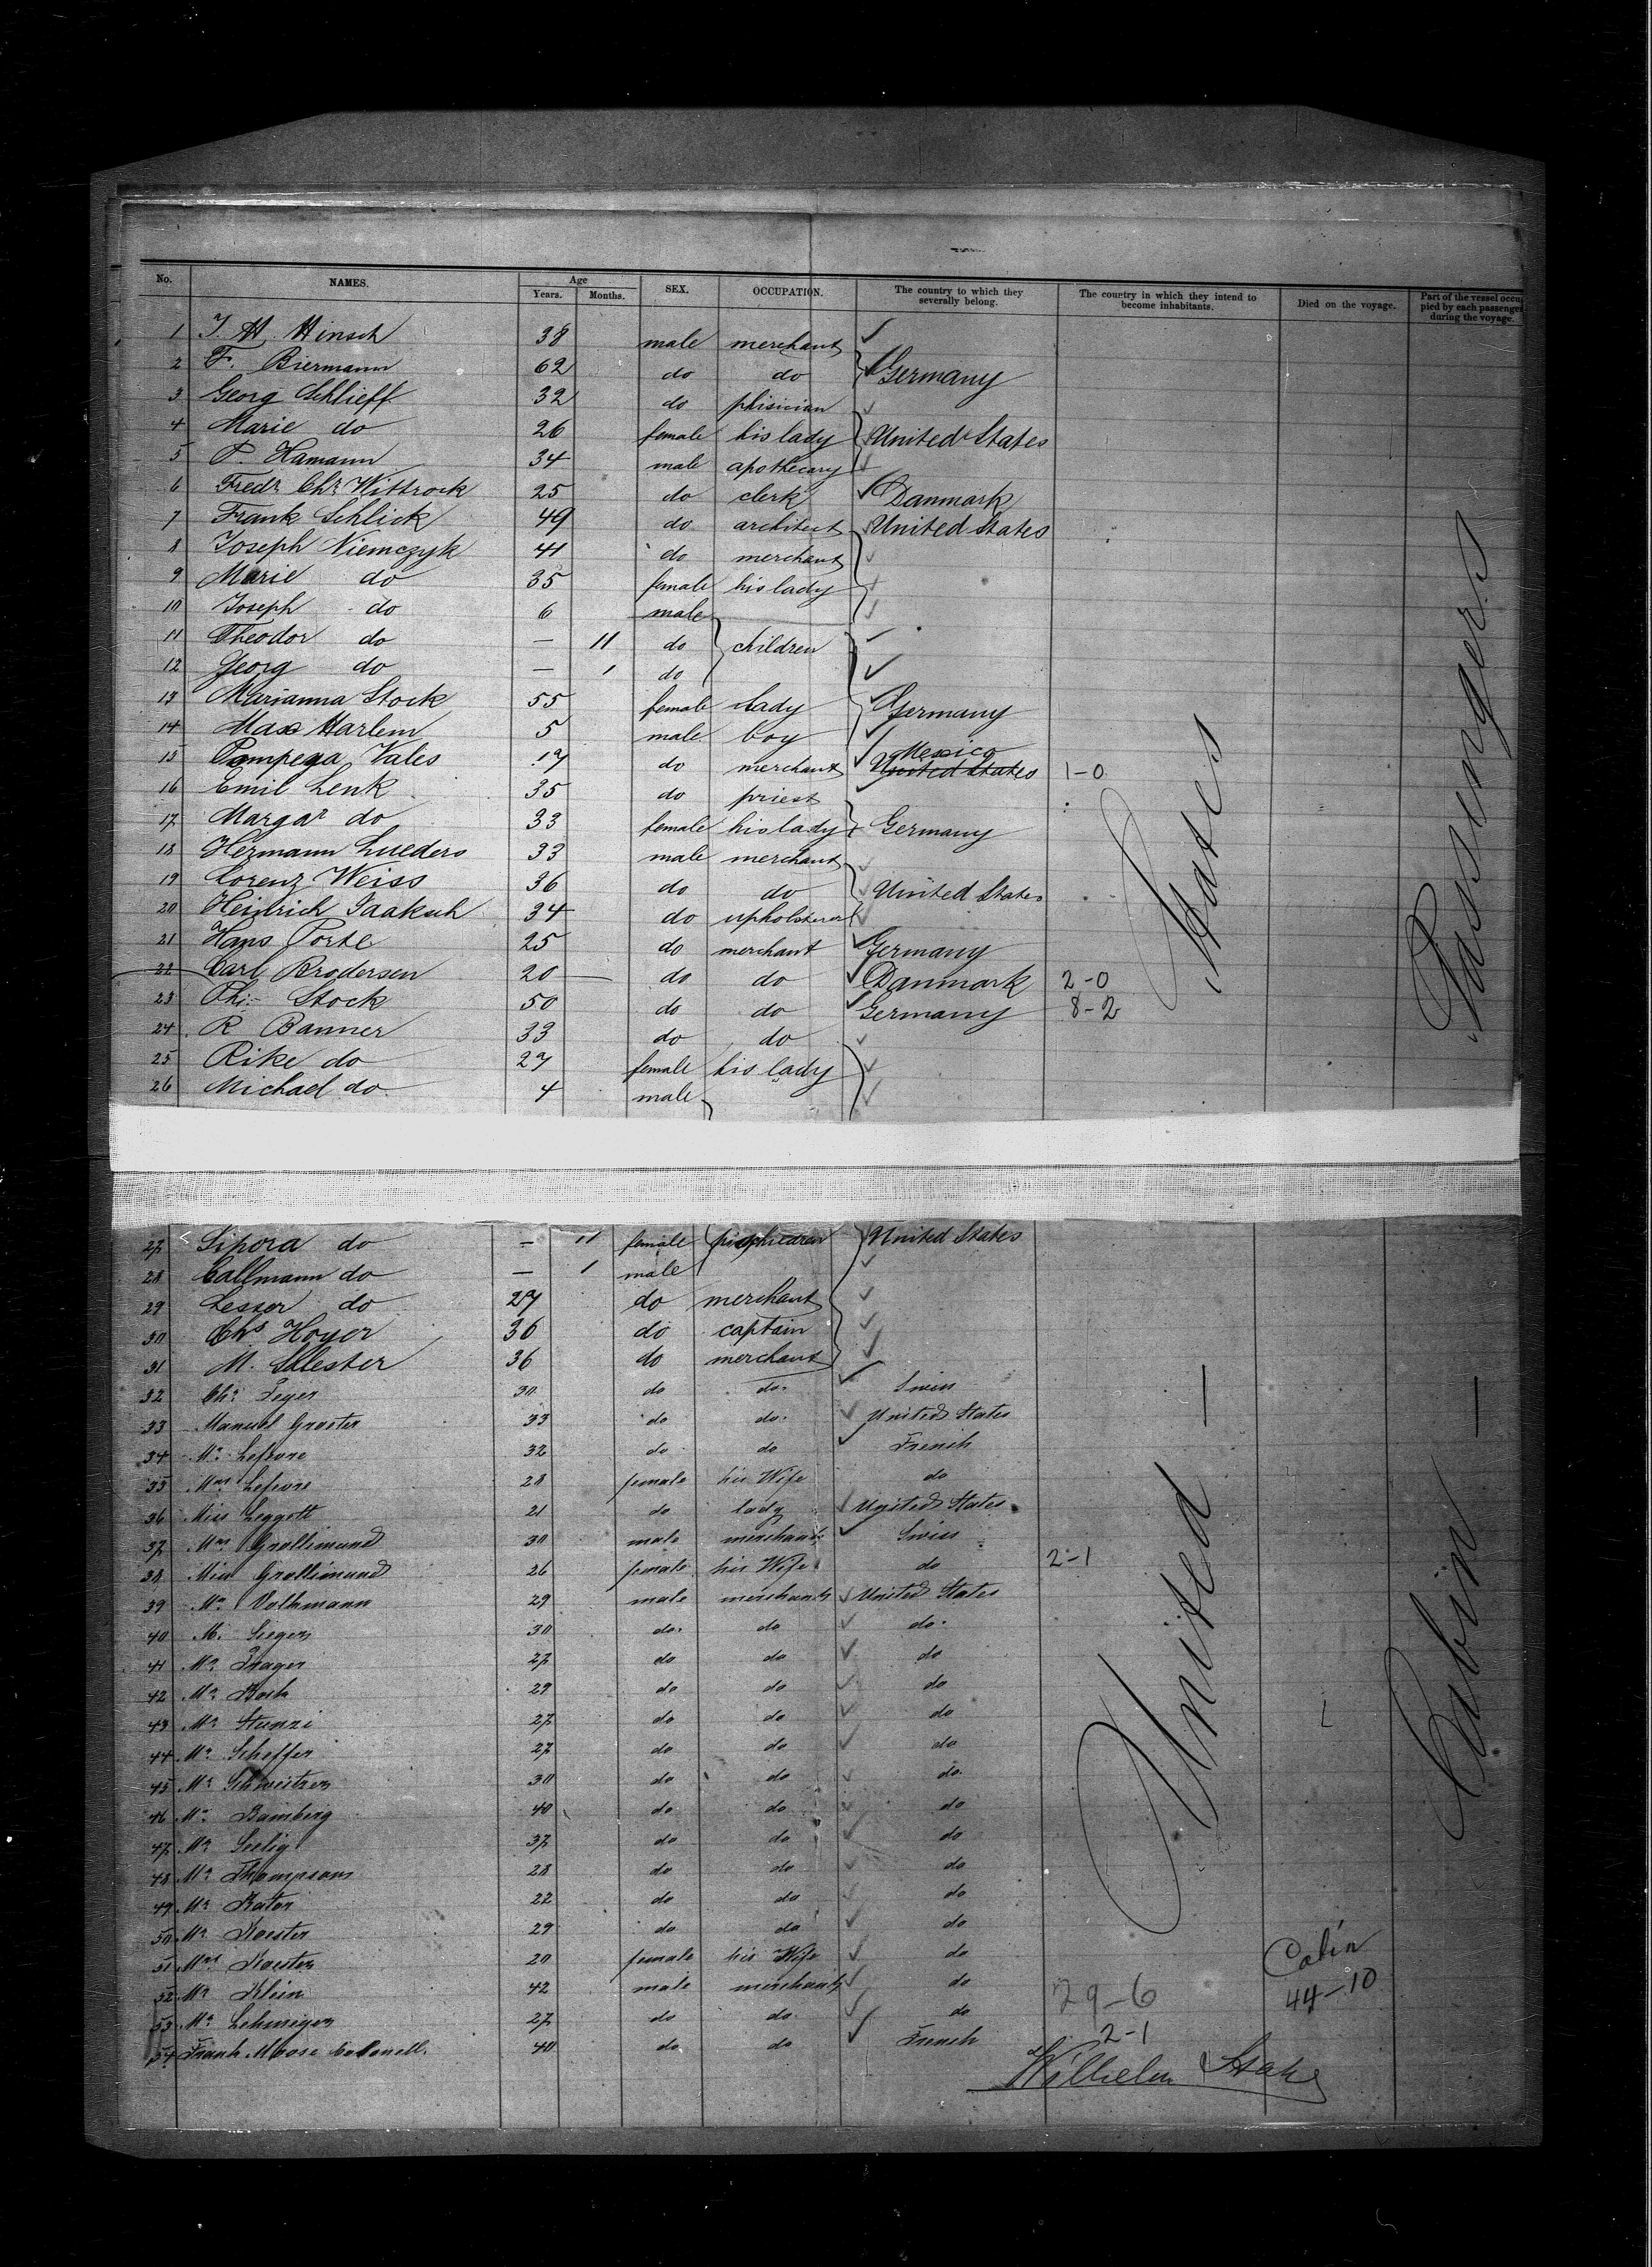 No. NAMES. Age Years. Months. SEX. OCCUPATION. The country to which they severally belong. The country in which they intend to become inhabitants. Died on the voyage. Part of the vessel occupied by each passenger during the voyage.
1 J. H. Hinsch 38 male merchant
2 F. Biermann 62 do do Germany
3 Georg Schlieff 32 do phisician
4 Marie do 26 female his lady United States
5 P. Hamann 34 male apothecary
6 Fredr Chr Wittrock 25 do clerk Danmark
7 Frank Schlick 49 do architect United States
8 Joseph Niemczyk 41 do merchant
9 Marie do 35 female his lady
10 Joseph do 6 male
11 Theodor do — 11 do children
12 Georg do — 1 do
13 Marianna Stock 55 female Lady Germany
14 Max Harlem 5 male boy
15 Pompega Vales 17 do merchant Mexico United States 1-0
16 Emil Lenk 35 do priest
17 Margar do 33 female his lady Germany
18 Hermann Lueders 33 male merchant
19 Lorenz Weiss 36 do do United States
20 Heinrich Jaaksch 34 do upholsterer
21 Hans Porte 25 do merchant Germany
22 Carl Brodersen 20 do do Danmark 2-0
23 Phi: Stock 50 do do Germany 8-2
24 R Banner 33 do do
25 Rike do 27 female his lady
26 Michael do 4 male
27 Sipora do — 11 female children United States
28 Callmann do — 1 male
29 Lesser do 27 do merchant
30 Chs Hoyer 36 do captain
31 M. Sallester 36 do merchant
32 Chr Leyer 30 do do Swiss
33 Manuel Groster 33 do do United States
34 Mr Lefevre 32 do do French
35 Mrs Lefevre 28 female his Wife do
36 Miss Leggett 21 do lady United States
37 Mr Grollimund 30 male merchant Swiss
38 Miss Grollimund 26 female his Wife do 2-1
39 Mr Volkmann 29 male merchant United States
40 Mr Siegers 30 do do do
41 Mr Trager 27 do do do
42 Mr Bosh 29 do do do
43 Mr Stunzi 27 do do do
44 Mr Scheffer 27 do do do
45 Mr Schweitzer 30 do do do
46 Mr Bamberg 40 do do do
47 Mr Seelig 37 do do do
48 Mr Thompson 28 do do do
49 Mr Bator 22 do do do
50 Mr Koester 29 do do do
51 Mrs Koester 20 female his Wife do
52 Mr Klein 42 male merchant do 29-6
53 Mr Lehmeyer 27 do do do 2-1
54 Frank Moose Colonell. 40 do do French
United States
Cabin Passengers
Cabin
44-10
Wilhelm